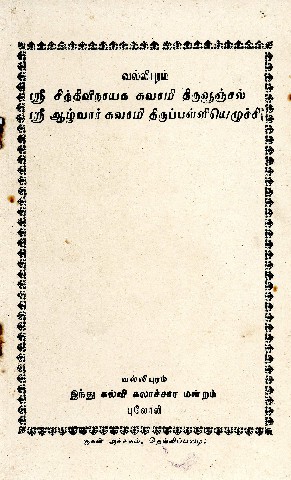 வல்லிபுரம்
ஸ்ரீ சித்திவிநாயக சுவாமி திருவூஞ்சல்
ஸ்ரீ ஆழ்வார் சுவாமி திருப்பள்ளியெழுச்சி
வல்லிபுரம்
இந்து கல்வி கலாச்சார மன்றம்
புலோலி
குகன் அச்சகம், தெல்லிப்பழை.